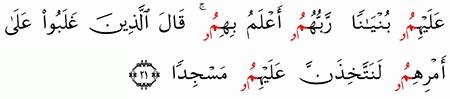 عَلَيۡهِمُۥ بُنۡيَٰنٗا رَّبُّهُمُۥ أَعۡلَمُ بِهِمُۥۚ قَالَ ٱلَّذِينَ غَلَبُواْ عَلَىٰٓ
أَمۡرِهِمُۥ لَنَتَّخِذَنَّ عَلَيۡهِمُۥ مَسۡجِدٗا ۝٢١